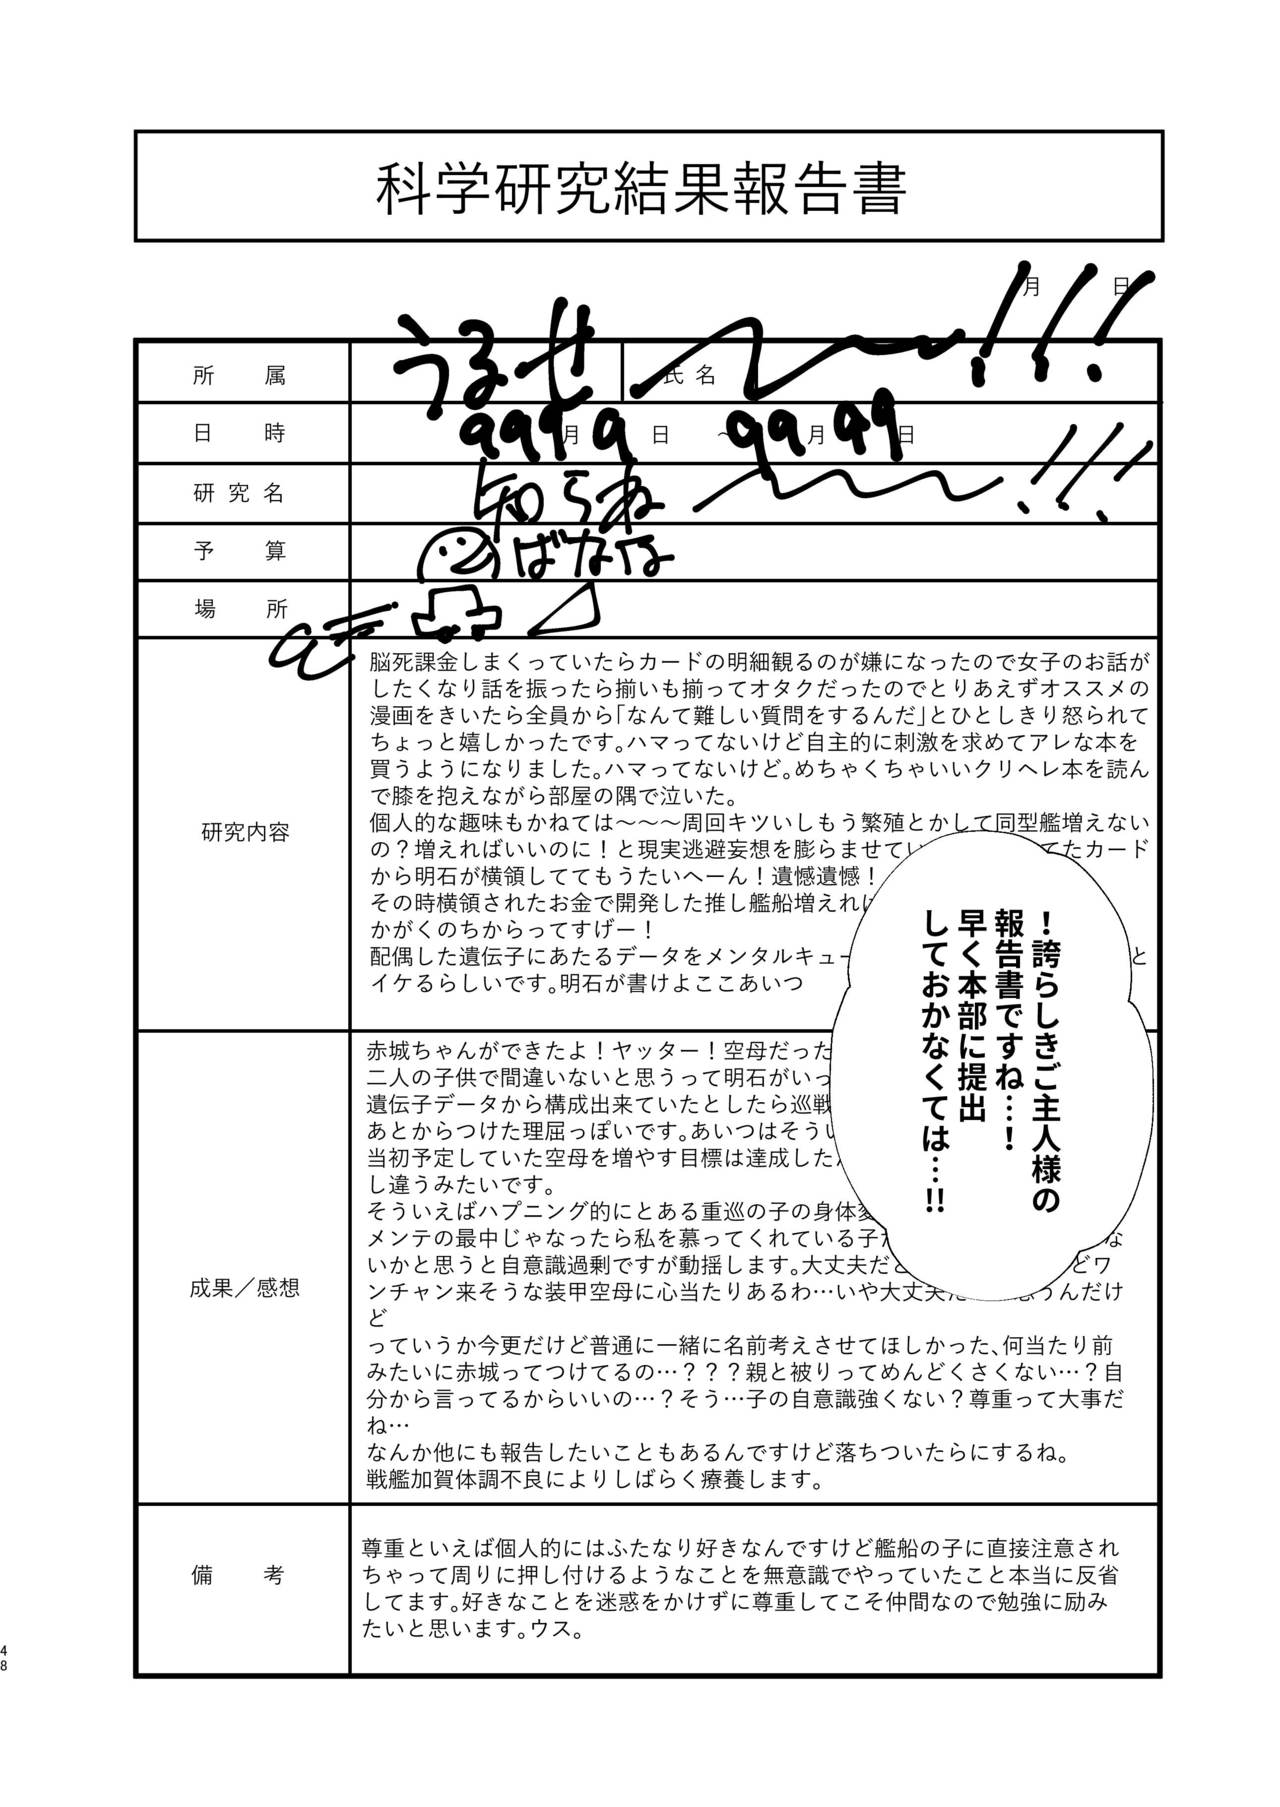 科学研究結果報告書
月 日
所 属 うるせ 氏名 〜!!!
日 時 9999月9日 〜99月99日
研究名 知らね〜!!!
予 算 ばなな
場 所
研究内容
脳死課金しまくっていたらカードの明細観るのが嫌になったので女子のお話が
したくなり話を振ったら揃いも揃ってオタクだったのでとりあえずオススメの
漫画をきいたら全員から「なんて難しい質問をするんだ」とひとしきり怒られて
ちょっと嬉しかったです。ハマってないけど自主的に刺激を求めてアレな本を
買うようになりました。ハマってないけど。めちゃくちゃいいクリヘレ本を読ん
で膝を抱えながら部屋の隅で泣いた。
個人的な趣味もかねては〜〜〜周回キツいしもう繁殖とかして同型艦増えない
の?増えればいいのに!と現実逃避妄想を膨らませてい てたカード
から明石が横領しててもうたいへーん!遺憾遺憾!
その時横領されたお金で開発した推し艦船増えれ
かがくのちからってすげー!
配偶した遺伝子にあたるデータをメンタルキュー と
イケるらしいです。明石が書けよここあいつ
!誇らしきご主人様の
報告書ですね…!
早く本部に提出
しておかなくては…!!
成果/感想
赤城ちゃんができたよ!ヤッター!空母だった
二人の子供で間違いないと思うって明石がいっ
遺伝子データから構成出来ていたとしたら巡戦
あとからつけた理屈っぽいです。あいつはそうい
当初予定していた空母を増やす目標は達成した
し違うみたいです。
そういえばハプニング的にとある重巡の子の身体変
メンテの最中じゃなったら私を慕ってくれている子 な
いかと思うと自意識過剰ですが動揺します。大丈夫だと どワ
ンチャン来そうな装甲空母に心当たりあるわ…いや大丈夫だ 思うんだけ
ど
っていうか今更だけど普通に一緒に名前考えさせてほしかった、何当たり前
みたいに赤城ってつけてるの…???親と被りってめんどくさくない…?自
分から言ってるからいいの…?そう…子の自意識強くない?尊重って大事だ
ね…
なんか他にも報告したいこともあるんですけど落ちついたらにするね。
戦艦加賀体調不良によりしばらく療養します。
備 考
尊重といえば個人的にはふたなり好きなんですけど艦船の子に直接注意され
ちゃって周りに押し付けるようなことを無意識でやっていたこと本当に反省
してます。好きなことを迷惑をかけずに尊重してこそ仲間なので勉強に励み
たいと思います。ウス。
48